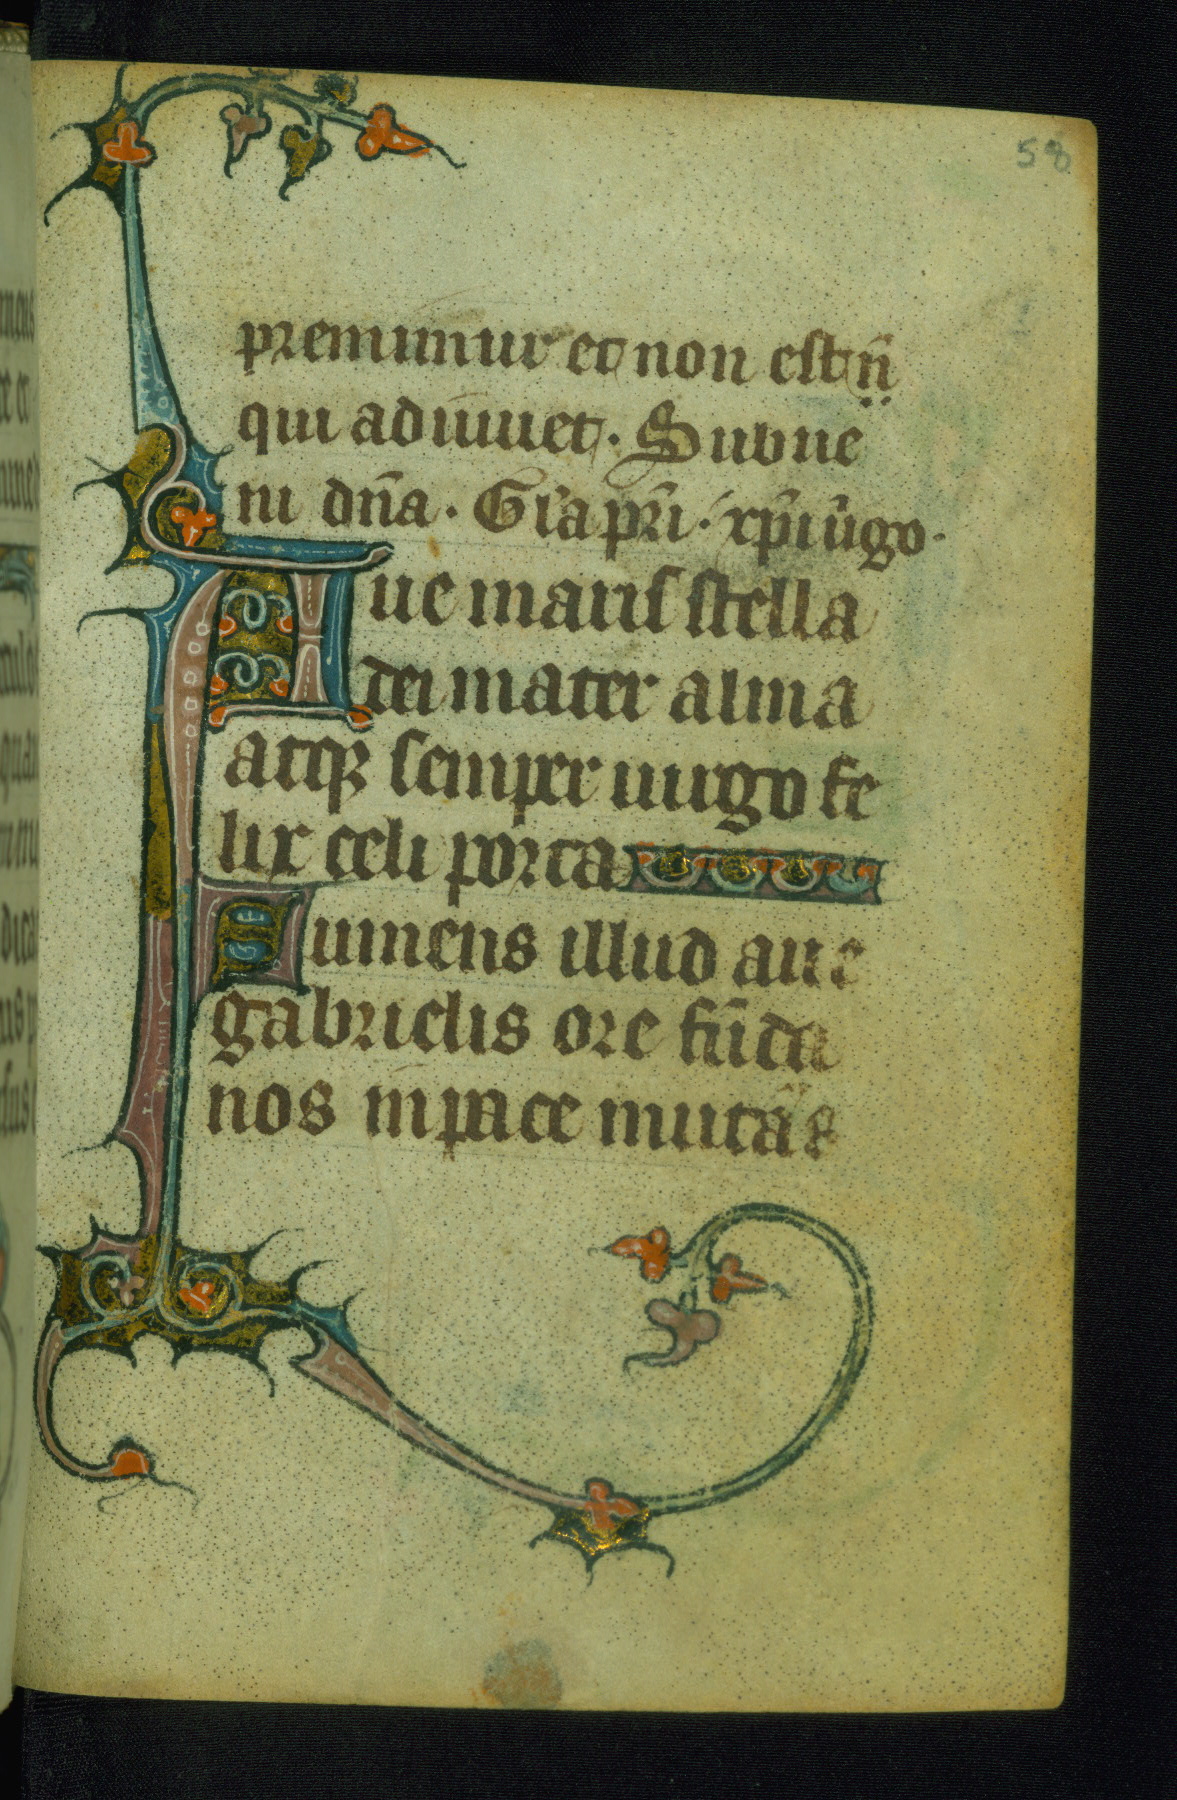 58
premimur et non est n̄
qui adiuuet. Subue
ni dn̄a. Gl'a pr̄i. xp̄i ūgo.
Aue maris stella
dei mater alma
atqꝫ semper uirgo fe
lix celi porta
Sumens illud aue
gabrielis ore fūda
nos in pace mutās